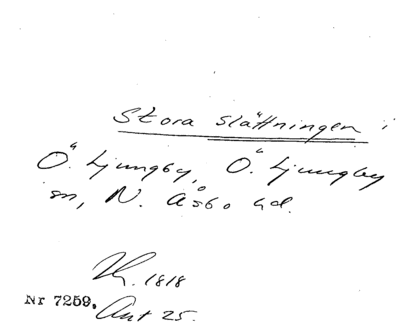 Stora slättningen i
Ö. Ljungby, Ö. Ljungby
sn, N. Åsbo hd.
1818
Nr 7259. Ant 25.